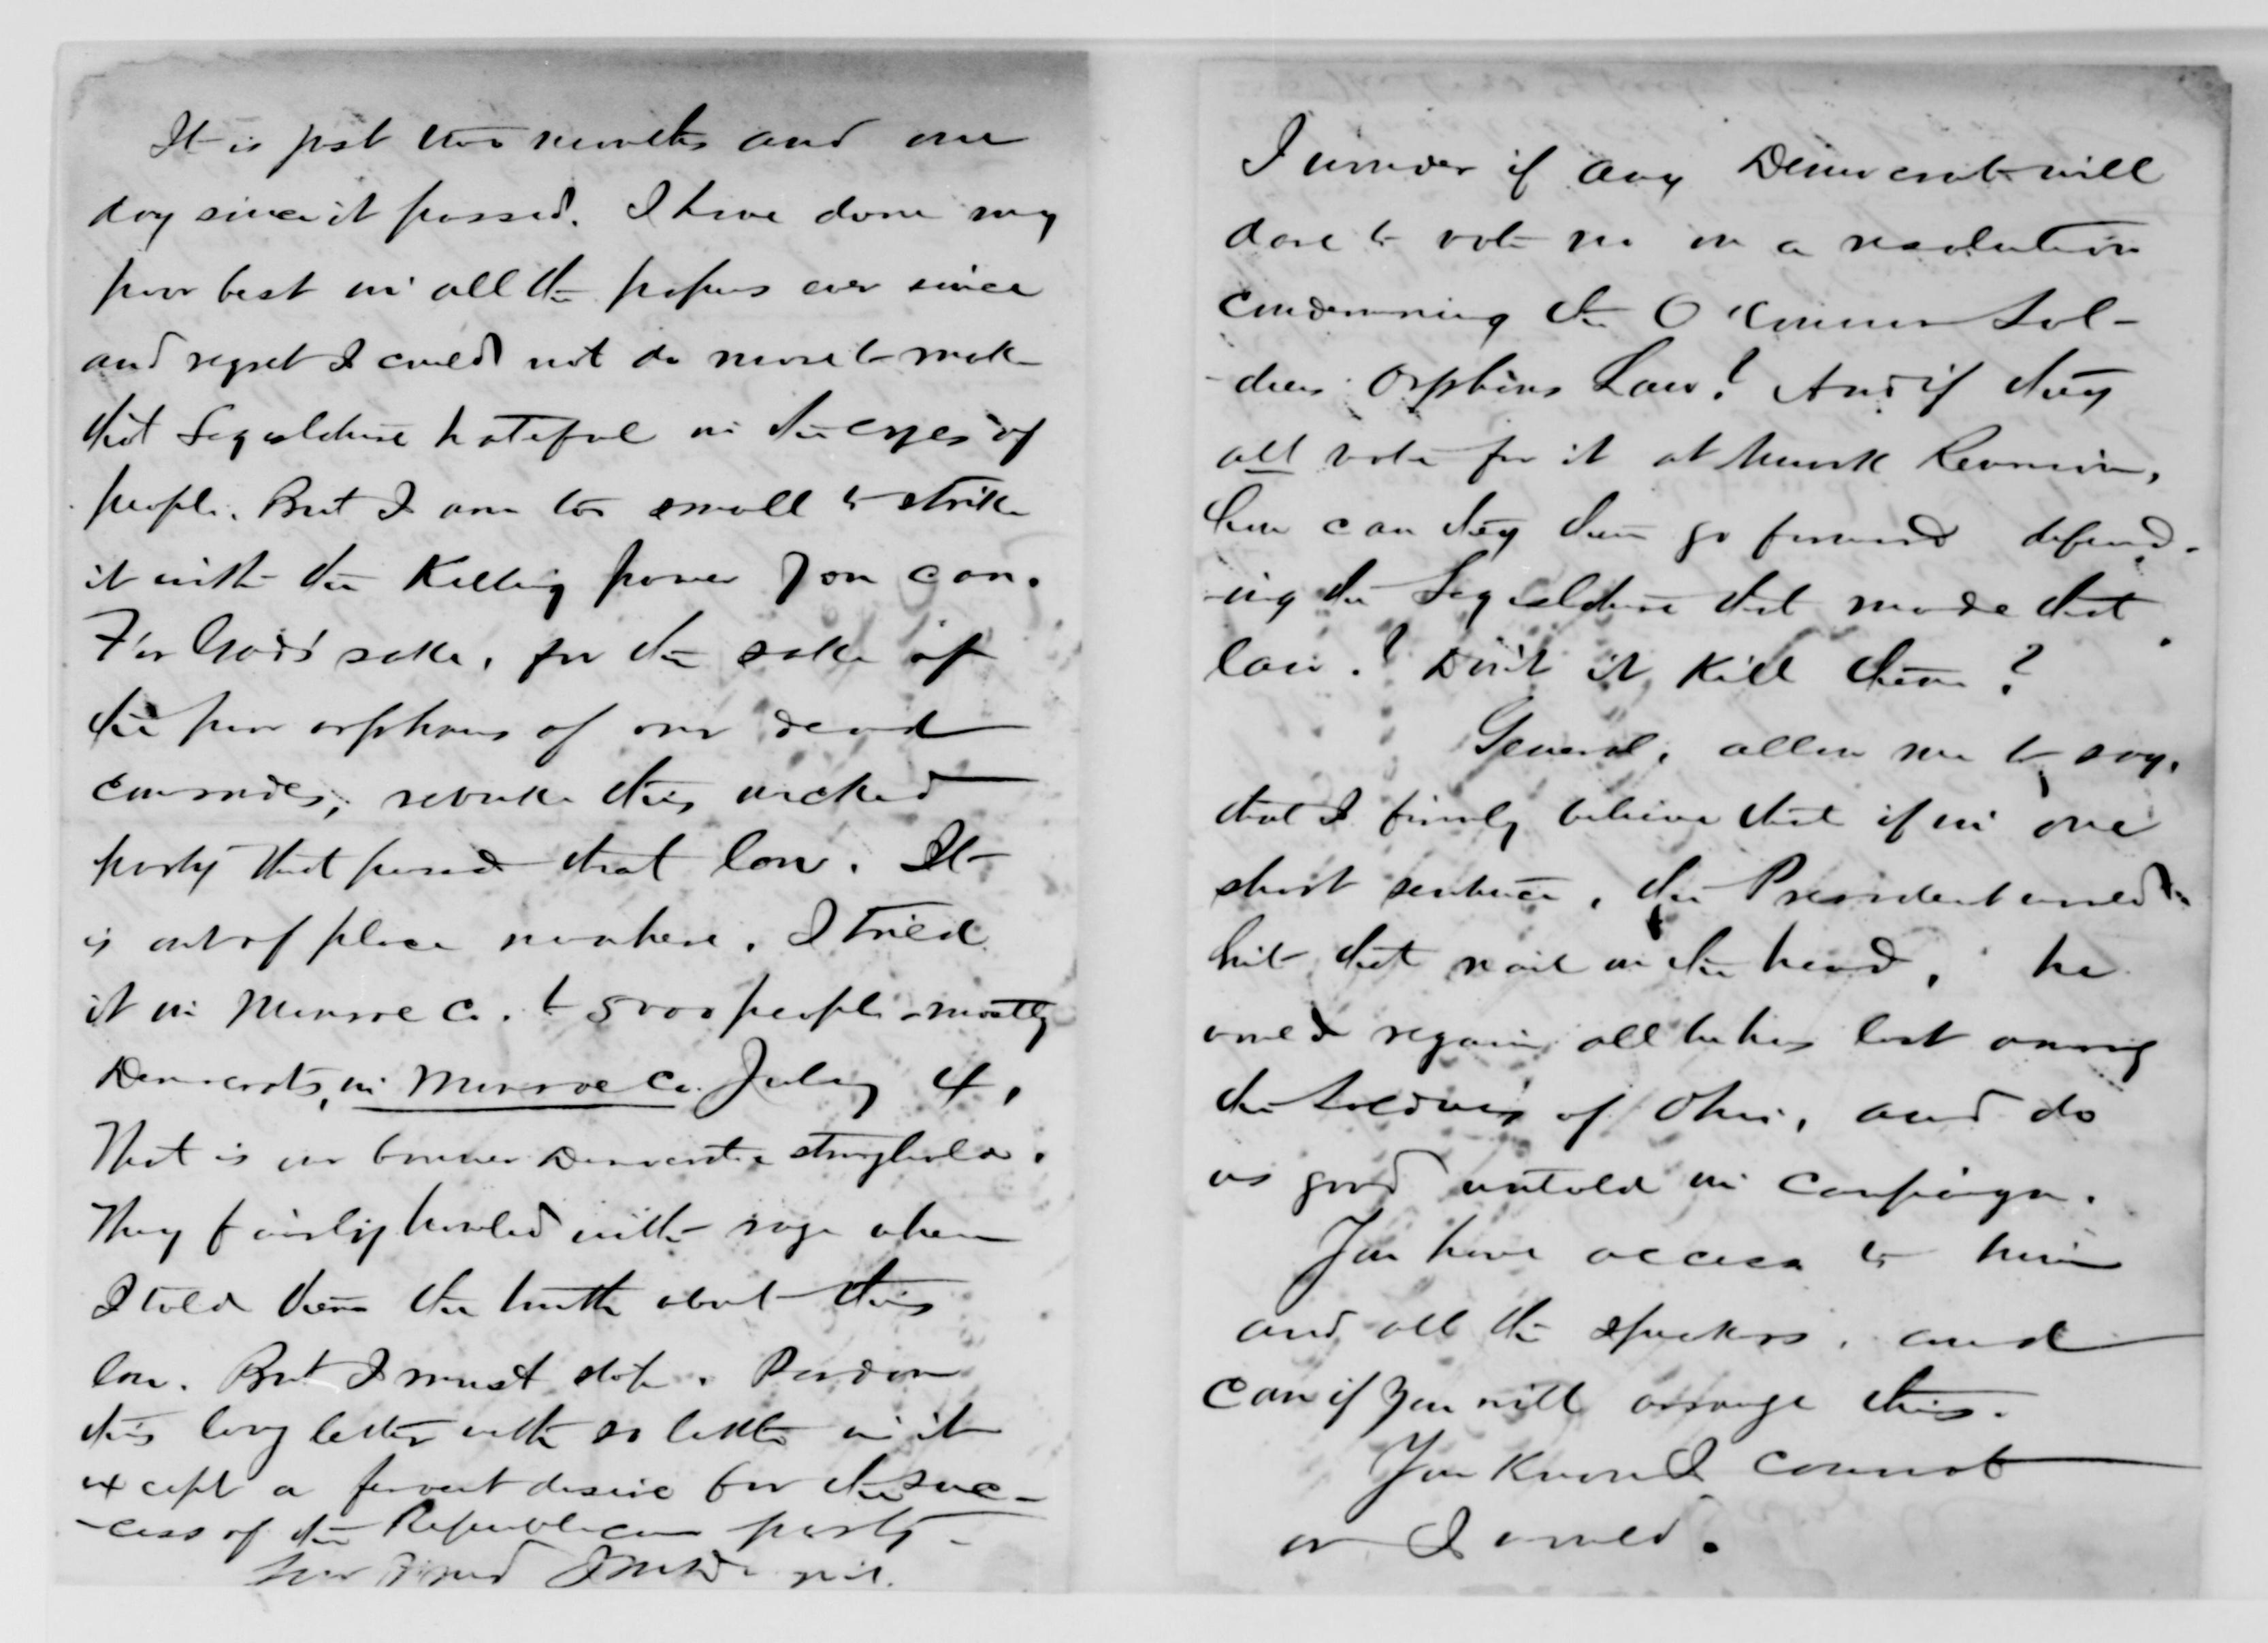 It is just two months and one
day since it passed. I have done my
poor best in all the papers ever since
and regret I could not do more to make
that Legislature hateful in the eyes of
people. But I am too small to strike
it with the Killing power you can.
For God's sake, for the sake of
the poor orphans of our dead
comrades, rebuke this wicked
party that passed that law. It
is out of place nowhere. I tried
it in Monroe Co. to 5000 people mostly
Democrats, in Monroe Co. July 4,
That is our banner Democratic stronghold.
They fairly howled with rage when
I told them the truth about this
law. But I must stop. Pardon
this long letter with so little in it
except a fervent desire for the suc-
-cess of the Republican party.
Your Friend
I wonder if any Democrat will
dare to vote no on a resolution
condemning the O'Connor Sol-
-diers Orphans Law? And if they
all vote for it at Reunion,
how can they then go forward defend-
-ing the Legislature that made that
law? Don't it Kill them?
General, allow me to say,
that I firmly believe that if in one
short sentence, the President would
hit that nail on the head, he
would regain all he has lost among
the Soldiers of Ohio, and do
us good untold in campaign.
You have access to him
and all the speakers, and
can if you will arrange this.
You Know I cannot
or I would.